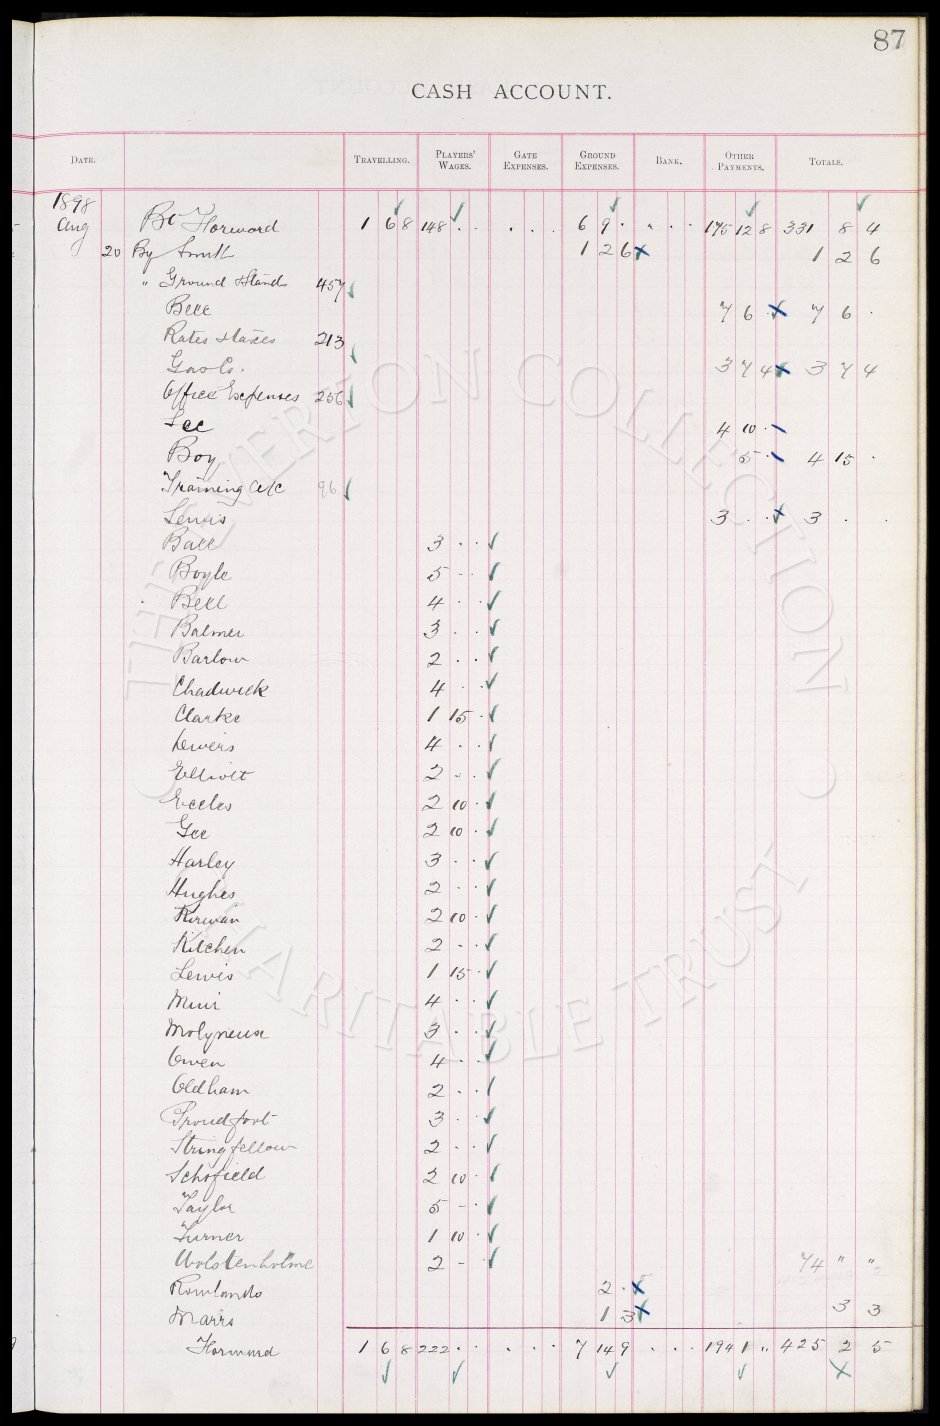 87
CASH ACCOUNT.
DATE. TRAVELLING. PLAYERS' WAGES. GATE EXPENSES. GROUND EXPENSES. BANK. OTHER PAYMENTS. TOTALS.
1898
Aug Bt Forward 1 6 8 148 . . . . . 6 9 . . . . 175 12 8 331 8 4
20 By Smith 1 2 6 1 2 6
" Ground & Stands 457
Bell 7 6 . 7 6 .
Rates & taxes 213
Gas Co. 3 7 4 3 7 4
Office Expenses 256
Lee 4 10 .
Boy 5 . 4 15 .
Training a/c 96
Lewis 3 . . 3 . .
Ball 3 . .
Boyle 5 - -
Bell 4 . .
Balmer 3 . .
Barlow 2 . .
Chadwick 4 . .
Clarke 1 15 .
Divers 4 . .
Elliott 2 . .
Eccles 2 10 .
Gee 2 10 .
Harley 3 . .
Hughes 2 . .
Kirwan 2 10 .
Kitchen 2 - .
Lewis 1 15 .
Muir 4 . .
Molyneux 3 . .
Owen 4 . .
Oldham 2 . .
Proudfoot 3 . .
Stringfellow 2 . .
Schofield 2 10 .
Taylor 5 - .
Turner 1 10 .
Wolstenholme 2 - . 74 " "
Rowlands 2 .
Marrs 1 3 3 3
Forward 1 6 8 222 . . . . . 7 14 9 . . . 194 1 .. 425 2 5
THE EVERTON COLLECTION CHARITABLE TRUST